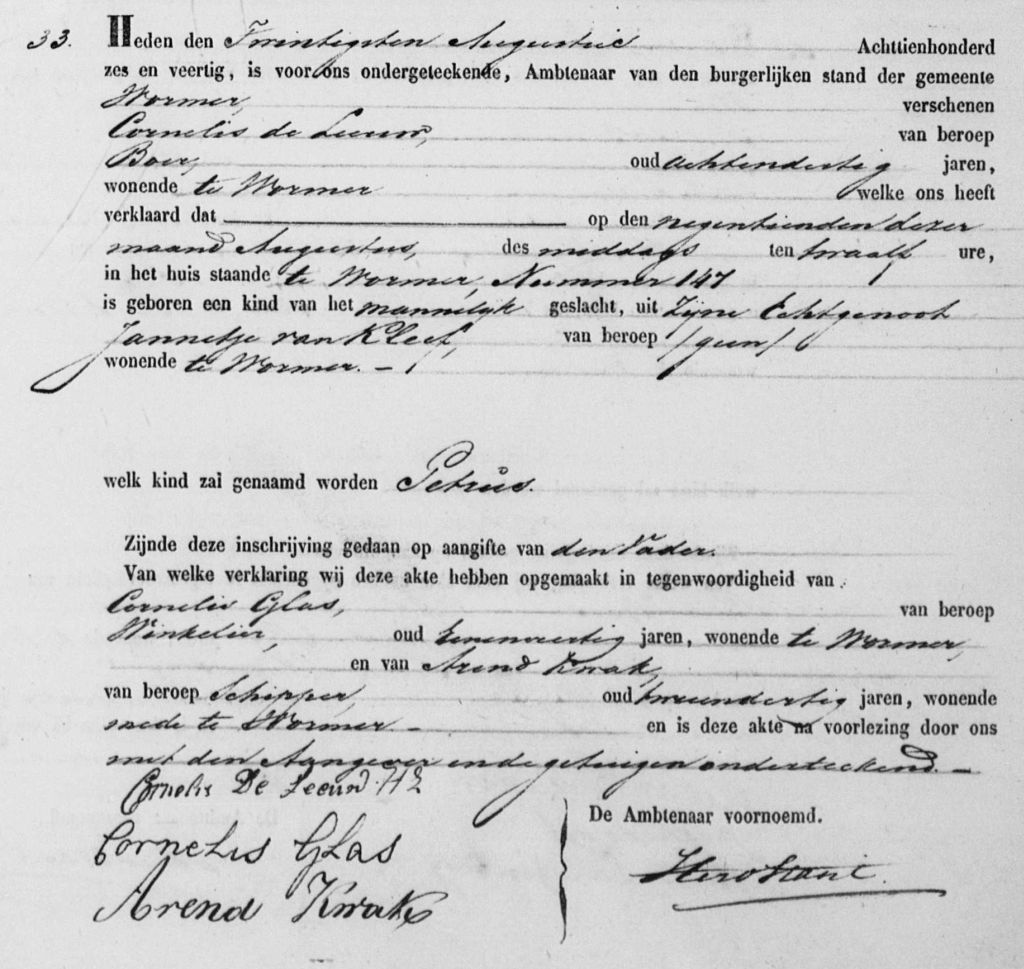 33. Heden den Twintigsten Augustus Achttienhonderd
zes en veertig, is voor ons ondergeteekende, Ambtenaar van den burgerlijken stand der gemeente
Wormer, verschenen
Cornelis de Leeuw, van beroep
Boer, oud achtendertig jaren,
wonende te Wormer welke ons heeft
verklaard dat op den negentienden dezer
maand Augustus, des middags ten twaalf ure,
in het huis staande te Wormer, Nummer 147
is geboren een kind van het mannelyk geslacht, uit Zyne Echtgenoot
Jannetje van Kleef, van beroep /geen/
wonende te Wormer. –
welk kind zal genaamd worden Petrus.
Zijnde deze inschrijving gedaan op aangifte van den Vader.
Van welke verklaring wij deze akte hebben opgemaakt in tegenwoordigheid van
Cornelis Glas, van beroep
Winkelier, oud eenenveertig jaren, wonende te Wormer,
en van Arend Kwak,
van beroep Schipper, oud tweendertig jaren, wonende
mede te Wormer – en is deze akte na voorlezing door ons
met den Aangever en de getuigen onderteekend. –
Cornelis De Leeuw Hz
Cornelis Glas
Arend Kwak
De Ambtenaar voornoemd.